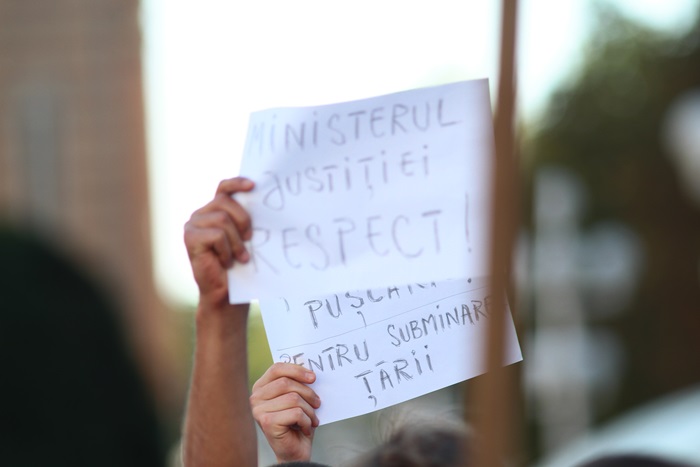 MINISTERUL
JUSTIȚIEI
RESPECT!
PENTRU SUBMINARE
ȚĂRII